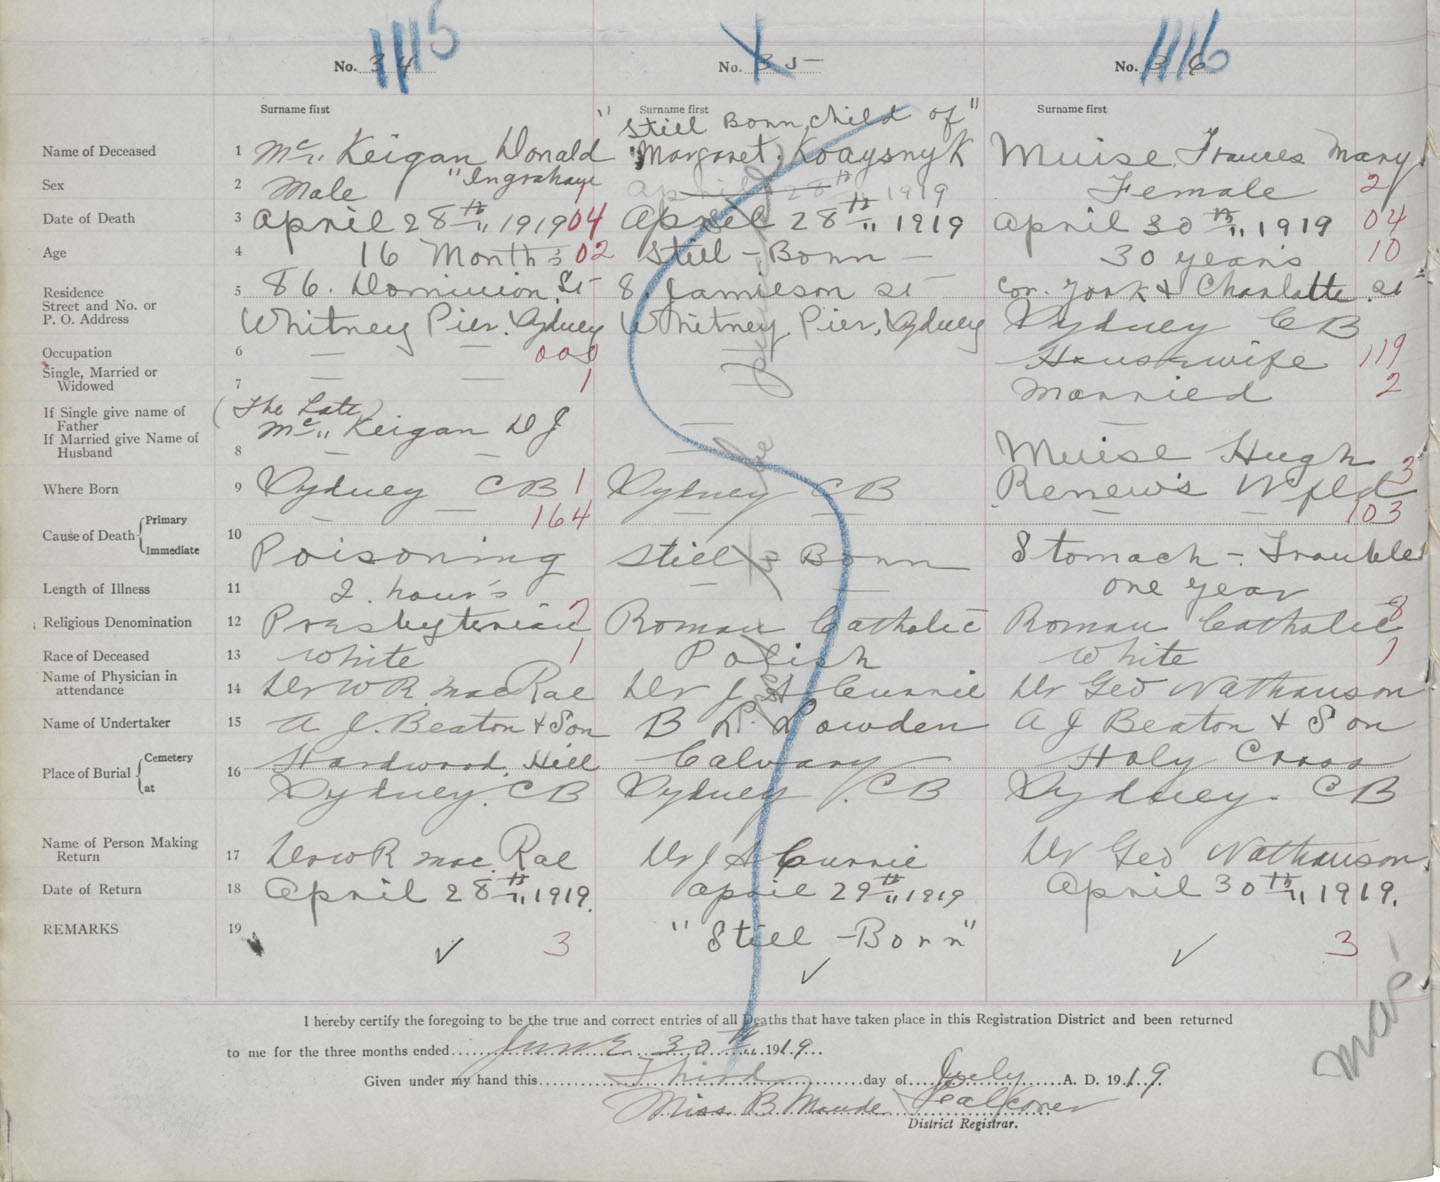 1115
1116
No. 34
No. 35
No. 36
Surname first
Surname first
Surname first
"Still Born child of"
Name of Deceased 1 McKeigan Donald "Margaret. Muise, Frances Mary
"Ingraham
Sex 2 Male 1 April 28th 1919 Female 2
Date of Death 3 April 28th 1919 04 April 28th 1919 April 30th 1919 04
Age 4 16 Month's 02 Still-Born — 30 years 10
Residence 5 86. Dominion St 8. Jamieson St cor. York & Charlotte St
Street and No. or
P. O. Address Whitney Pier, Sydney Whitney Pier, Sydney Sydney CB
Occupation 6 — — 000 — Housewife 119
Single, Married or
Widowed 7 — — 1 Married 2
If Single give name of (The Late)
Father McKeigan D J — —
If Married give Name of
Husband 8 — — — Muise Hugh
Where Born 9 Sydney CB 1 Sydney CB Renew's Nfld 3
Cause of Death { Primary 10 — 164 — — — — 103
Immediate Poisoning Still Born Stomach-Trouble
Length of Illness 11 2. hour's — one year
Religious Denomination 12 Presbyterian 7 Roman Catholic Roman Catholic 8
Race of Deceased 13 White 1 Polish White 1
Name of Physician in
attendance 14 Dr W R. MacRae Dr J A Currie Dr Geo Nathanson
Name of Undertaker 15 A J. Beaton & Son Lowden A J Beaton & Son
Place of Burial { Cemetery 16 Hardwood Hill Calvary Holy Cross
at Sydney. CB Sydney. CB Sydney. CB
Name of Person Making
Return 17 Dr W R Mac Rae Dr J A Currie Dr Geo Nathanson
Date of Return 18 April 28th 1919. April 29th 1919 April 30th 1919.
REMARKS 19 3 "Still-Born" 3
I hereby certify the foregoing to be the true and correct entries of all Deaths that have taken place in this Registration District and been returned
to me for the three months ended June 30th 1919
Given under my hand this Third day of July A. D. 1919.
Miss B Maude Falconer
District Registrar.